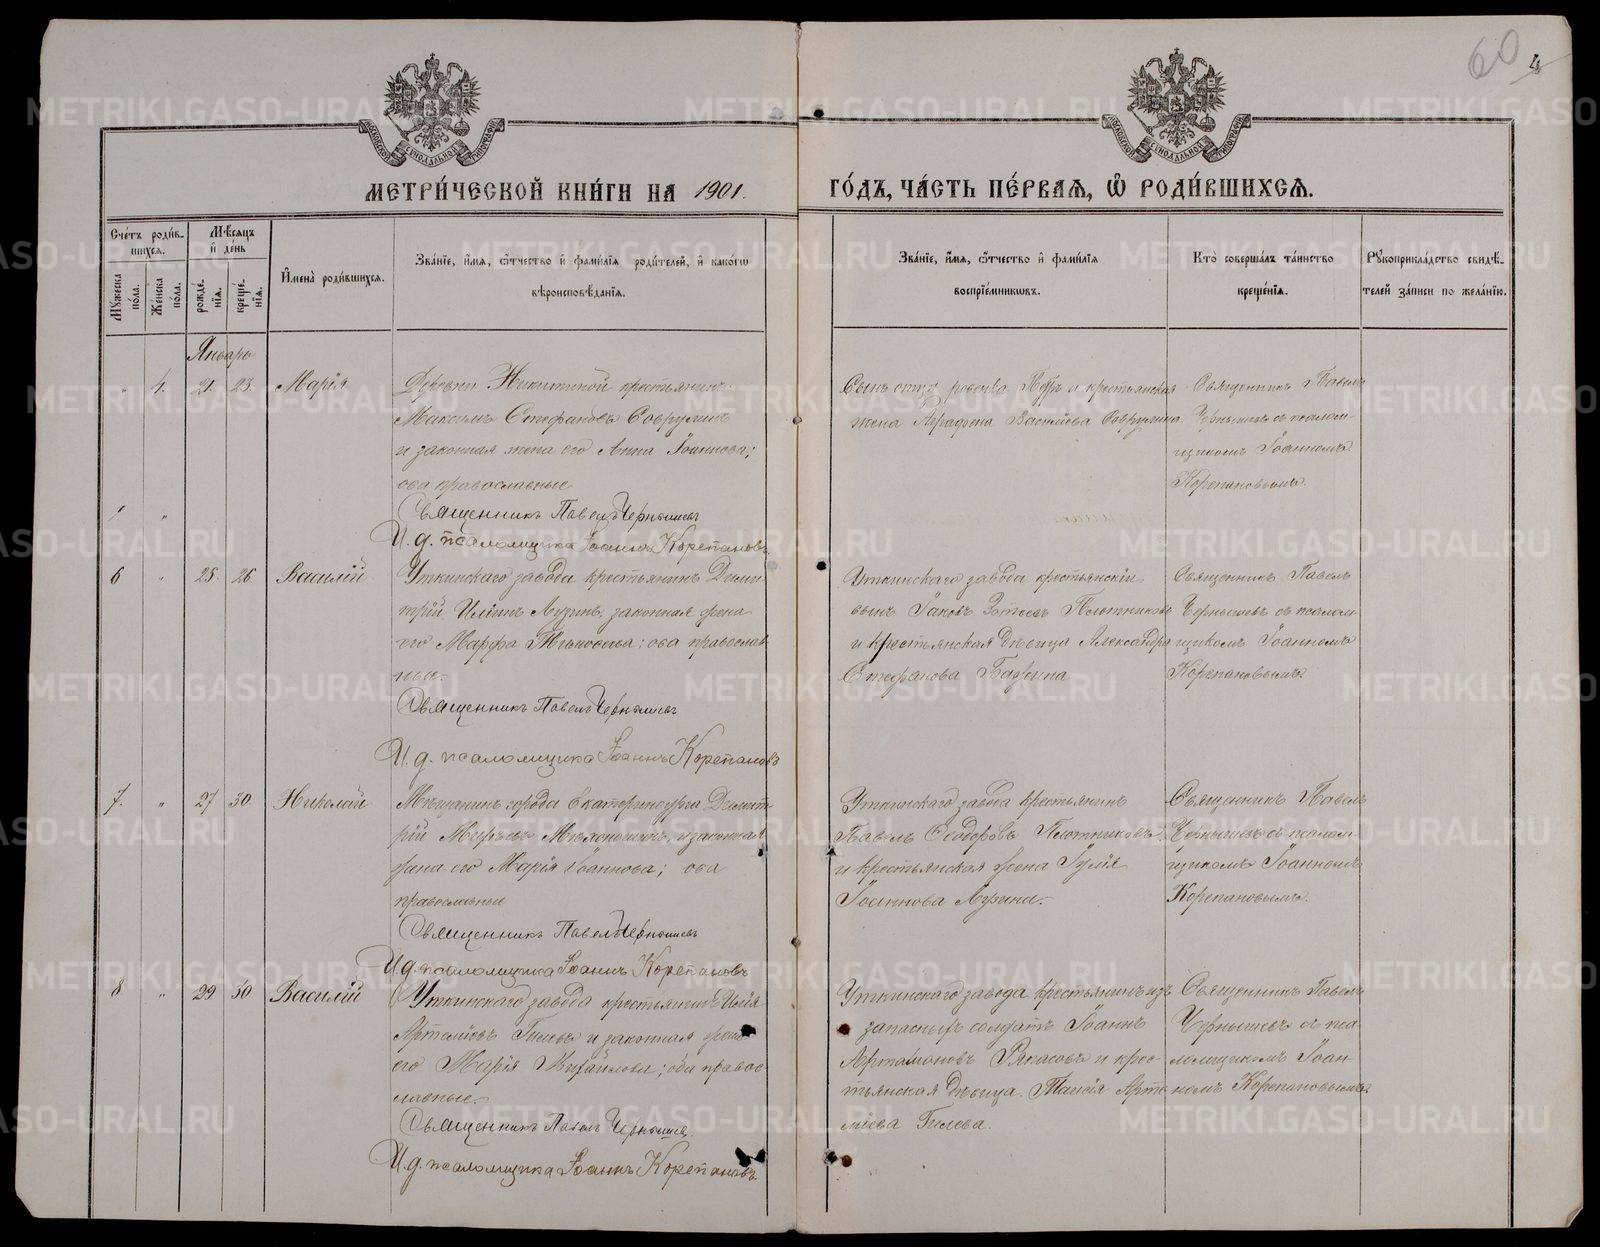 60 4
МЕТРИ́ЧЕСКОЙ КНИ́ГИ НА 1901.
ГО́ДЪ, ЧА́СТЬ ПЕ́РВАѦ, Ѡ҆ РОДИ́ВШИХСѦ.
Сче́тъ роди́вшихсѧ.
Мꙋ́жеска по́ла.
Же́нска по́ла.
Мѣ́сѧцъ и҆ де́нь
рожде́нїѧ.
креще́нїѧ.
И҆мена̀ роди́вшихсѧ.
Зва́нїе, и҆́мѧ, ѻ҆́тчество и҆ фами́лїѧ роди́телей, и҆ како́гѡ
вѣроисповѣ́данїѧ.
Зва́нїе, и҆́мѧ, ѻ҆́тчество и҆ фами́лїѧ
воспрїе́мникѡвъ.
Кто̀ соверша́лъ та́инство
креще́нїѧ.
Рꙋкоприкла́дство свидѣ́-
телей за́писи по жела́нїю.
Январь
" 4. 21. 23. Марія
Деревни Никитиной крестьянинъ
Максимъ Стефановъ
и законная жена его Анна Іоаннова;
оба православные
Священникъ Павелъ Чернышевъ
И. д. псаломщика Іоаннъ Корепановъ
крестьянская
жена Аграфена Васильева
Священникъ Павелъ
Чернышевъ съ псалом-
щикомъ Іоанномъ
Корепановымъ.
6 " 25. 26. Василій
Уткинскаго завода крестьянинъ Дими-
трій Ильинъ Лузинъ, законная жена
его Марфа ; оба православ
ные.
Священникъ Павелъ Чернышевъ
И. д. псаломщика Іоаннъ Корепановъ
Уткинскаго завода крестьянскій
сынъ Іаковъ Плотниковъ
и крестьянская дѣвица Александра
Стефанова
Священникъ Павелъ
Чернышевъ съ псалом
щикомъ Іоанномъ
Корепановымъ
7. " 27 30. Николай
Мѣщанинъ города Екатеринбурга Димит
рій и законная
жена его Марія Іоаннова; оба
православные
Священникъ Павелъ Чернышевъ
И. д. псаломщика Іоаннъ Корепановъ
Уткинскаго завода крестьянинъ
Павелъ Ѳеодоровъ Плотниковъ
и крестьянская жена Іулія
Іоаннова Лузина.
Священникъ Павелъ
Чернышевъ съ псалом-
щикомъ Іоанномъ
Корепановымъ.
8 " 29 30 Василій
Уткинскаго завода крестьянинъ Илія
Артеміевъ Гилевъ и законная жена
его Марія Михайлова; оба право
славные.
Священникъ Павелъ Чернышев.
И. д. псаломщика Іоаннъ Корепановъ.
Уткинскаго завода крестьянинъ изъ
запасныхъ солдатъ Іоаннъ
Артамоновъ Рякасовъ и крес-
тьянская дѣвица Таисія Арте
міева Гилева.
Священникъ Павелъ
Чернышевъ съ пса-
ломщикомъ Іоан-
номъ Корепановымъ.
METRIKI.GASO-URAL.RU